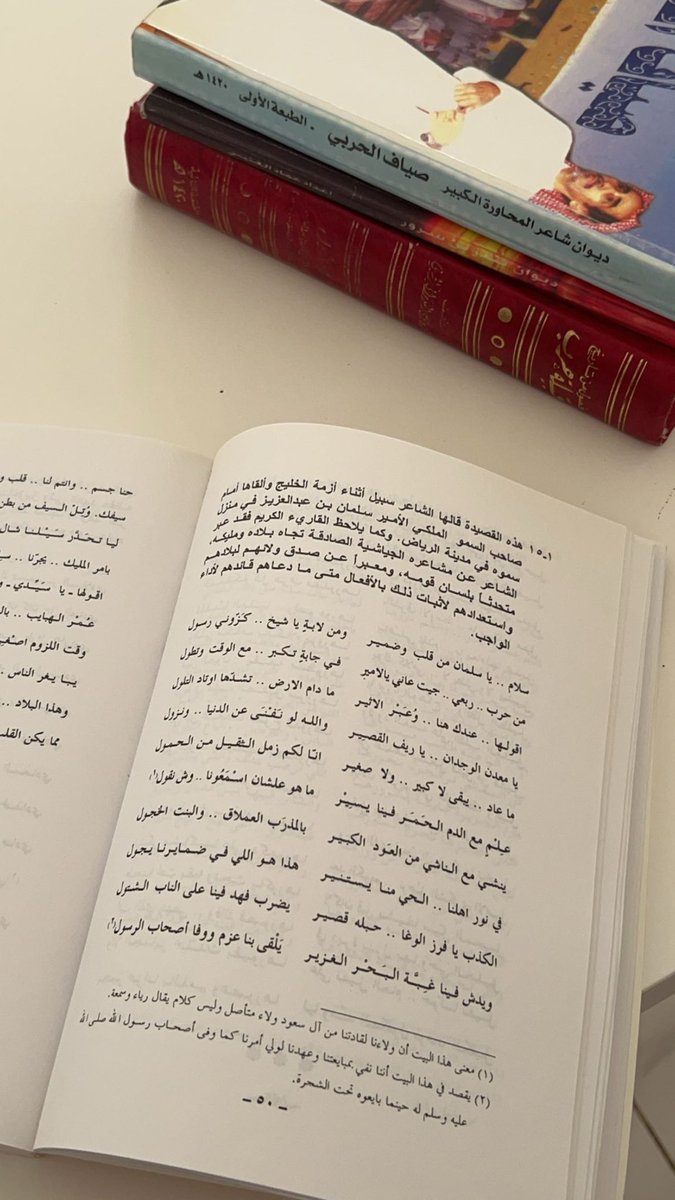 ديوان شاعر المحاورة الكبير صياف الحربي - الطبعة الأولى ١٤٢٠ هـ
ديوان
حنا جسم .. وانتم لنا .. قلب و
سيفك. وُتلّ السيف من بطن
ليا تحدر سيلنا شال
بامر المليك .. يجرّنا .. سي
اقولها ـ يا سيدي ـ و
عمر الهبايب .. بال
وقت اللزوم اصغير
يبا يغر الناس
وهذا البلاد ..
مما يكن القلب
١٥-١ هذه القصيدة قالها الشاعر سبيل أثناء أزمة الخليج وألقاها أمام
صاحب السمو الملكي الأمير سلمان بن عبدالعزيز في منزل
سموه في مدينة الرياض. وكما يلاحظ القاريء الكريم فقد عبر
الشاعر عن مشاعره الجياشية الصادقة تجاه بلاده ومليكه،
متحدثاً بلسان قومه، ومعبراً عن صدق ولائهم لبلادهم
واستعدادهم لاثبات ذلك بالأفعال متى ما دعاهم قائدهم لأداء
الواجب.
سلام .. يا سلمان من قلب وضمير ومن لابةٍ يا شيخ .. كنزّوني رسول
من حرب .. ربعي .. جيت عاني يالامير في جابةٍ تكبر .. مع الوقت وتطول
اقولها .. عندك هنا .. وُعبر الاثير ما دام الارض .. تشدّها اوتاد التلول
يا معدن الوجدان .. يا ريف القصير والله لو تفنى عن الدنيا .. ونزول
ما عاد .. يبقى لا كبير .. ولا صغير انّا لكم زمل الثقيل من الحمول
علمٍ مع الدم الحمر فينا يسير ما هو علشان اسمعونا .. وش نقول(١)
ينشي مع الناشي من العود الكبير بالمذرّب العملاق .. والبنت الخجول
في نور اهلنا .. الحي منا يستنير هذا هو اللي في ضمايرنا يجول
الكذب يا فرز الوغا .. حبله قصير يضرب فهد فينا على الناب الشتول
ويدش فينا غبّة البحر الغزير يَلْقى بنا عزم ووفا أصحاب الرسول(٢)
(١) معنى هذا البيت أن ولاءنا لقادتنا من آل سعود ولاء متأصل وليس كلام يقال رياء وسمعة.
(٢) يقصد في هذا البيت أننا نفي بمبايعتنا وعهدنا لولي أمرنا كما وفى أصحاب رسول الله صلى الله
عليه وسلم له حينما بايعوه تحت الشجرة.
ـ ٥٠ ـ